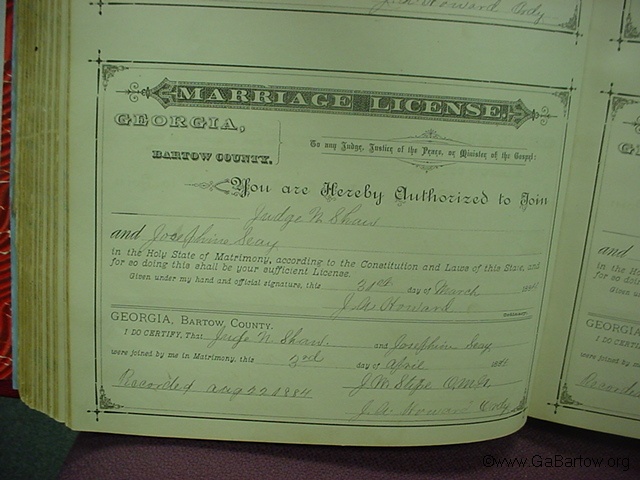 J. A. Howard Ordy
MARRIAGE LICENSE.
GEORGIA,
BARTOW COUNTY.
To any Judge, Justice of the Peace, or Minister of the Gospel:
You are Hereby Authorized to Join
Judge N Shaw
and Josephine Seay
in the Holy State of Matrimony, according to the Constitution and Laws of this State, and
for so doing this shall be your sufficient License.
Given under my hand and official signature, this 31st day of March 188
J. A. Howard
GEORGIA, BARTOW COUNTY.
I DO CERTIFY, That Judge N. Shaw. and Josephine Seay
were joined by me in Matrimony, this 3rd day of April 188
Recorded Aug 22 1884
J. A. Howard Ordy
and
in the H
for so d
Given
GEORGIA
I DO C
were joined by m
Recorde
©www.GaBartow.org